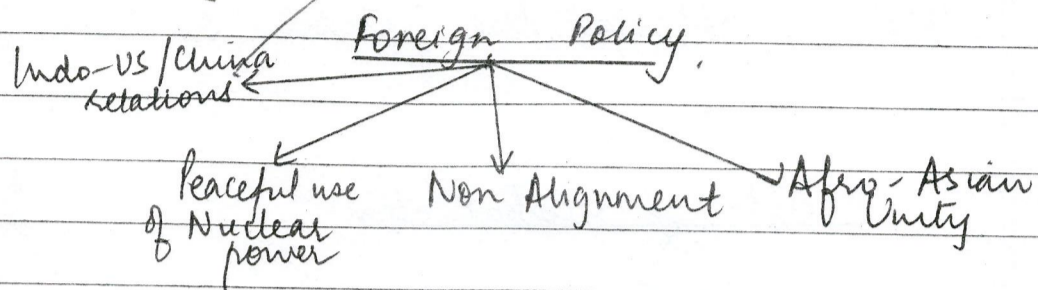 Foreign Policy.
Indo-US/China
relations
Peaceful use
of Nuclear
power
Non Alignment
Afro-Asian
Unity